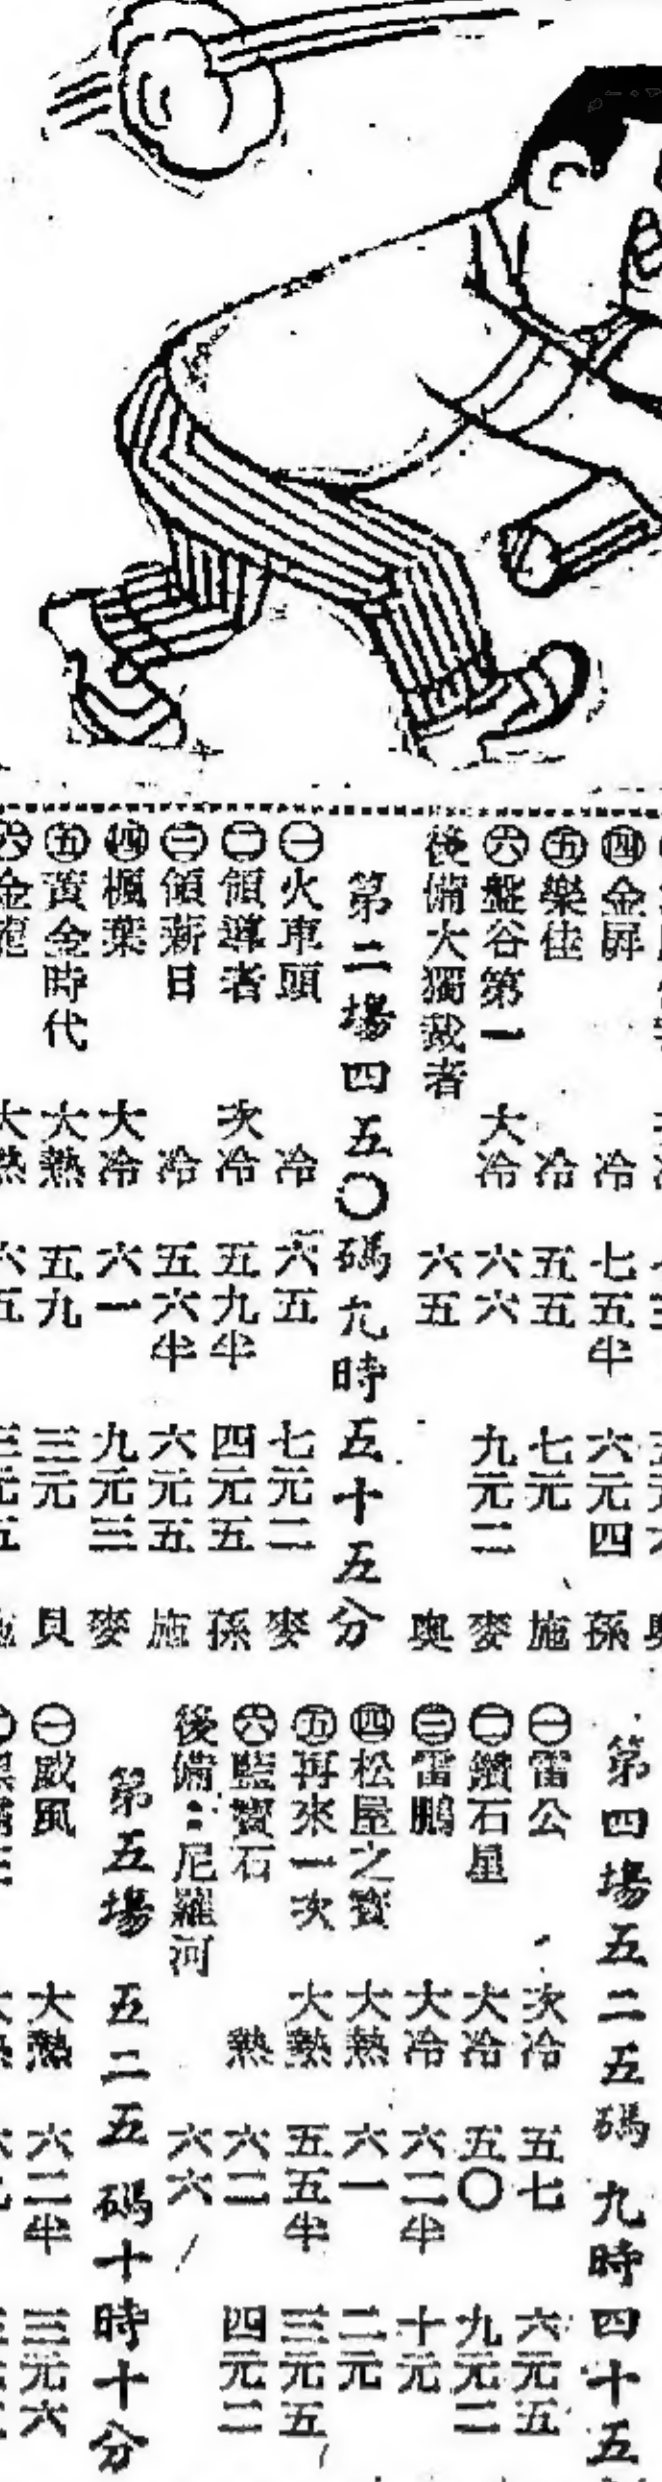 ㊃金屏 冷 七五半 六元四 孫
㊄樂佳 冷 五五 七元 施
㊅盤谷第一 大冷 六六 九元二 麥
後備大獨裁者 六五 奧
第二場四五〇碼九時五十五分
㊀火車頭 冷 六五 七元二 麥
㊁領導者 次冷 五九半 四元五 孫
㊂領薪日 冷 五六半 六元五 施
㊃楓葉 大冷 六一 九元三 麥
㊄黃金時代 大熱 五九 三元 貝
㊅金龍 大熱 六五 三元五 施
第四場五二五碼九時四十五
㊀雷公 次冷 五七 六元五
㊁鑽石星 大冷 五〇 九元二
㊂雷鵬 大冷 六二半 十元
㊃松屋之寶 大熱 六一 二元
㊄再來一次 大熱 五五半 三元五
㊅藍寶石 熱 六二 四元二
後備：尼羅河 六六
第五場 五二五碼十時十分
㊀威風 大熱 六二半 三元六